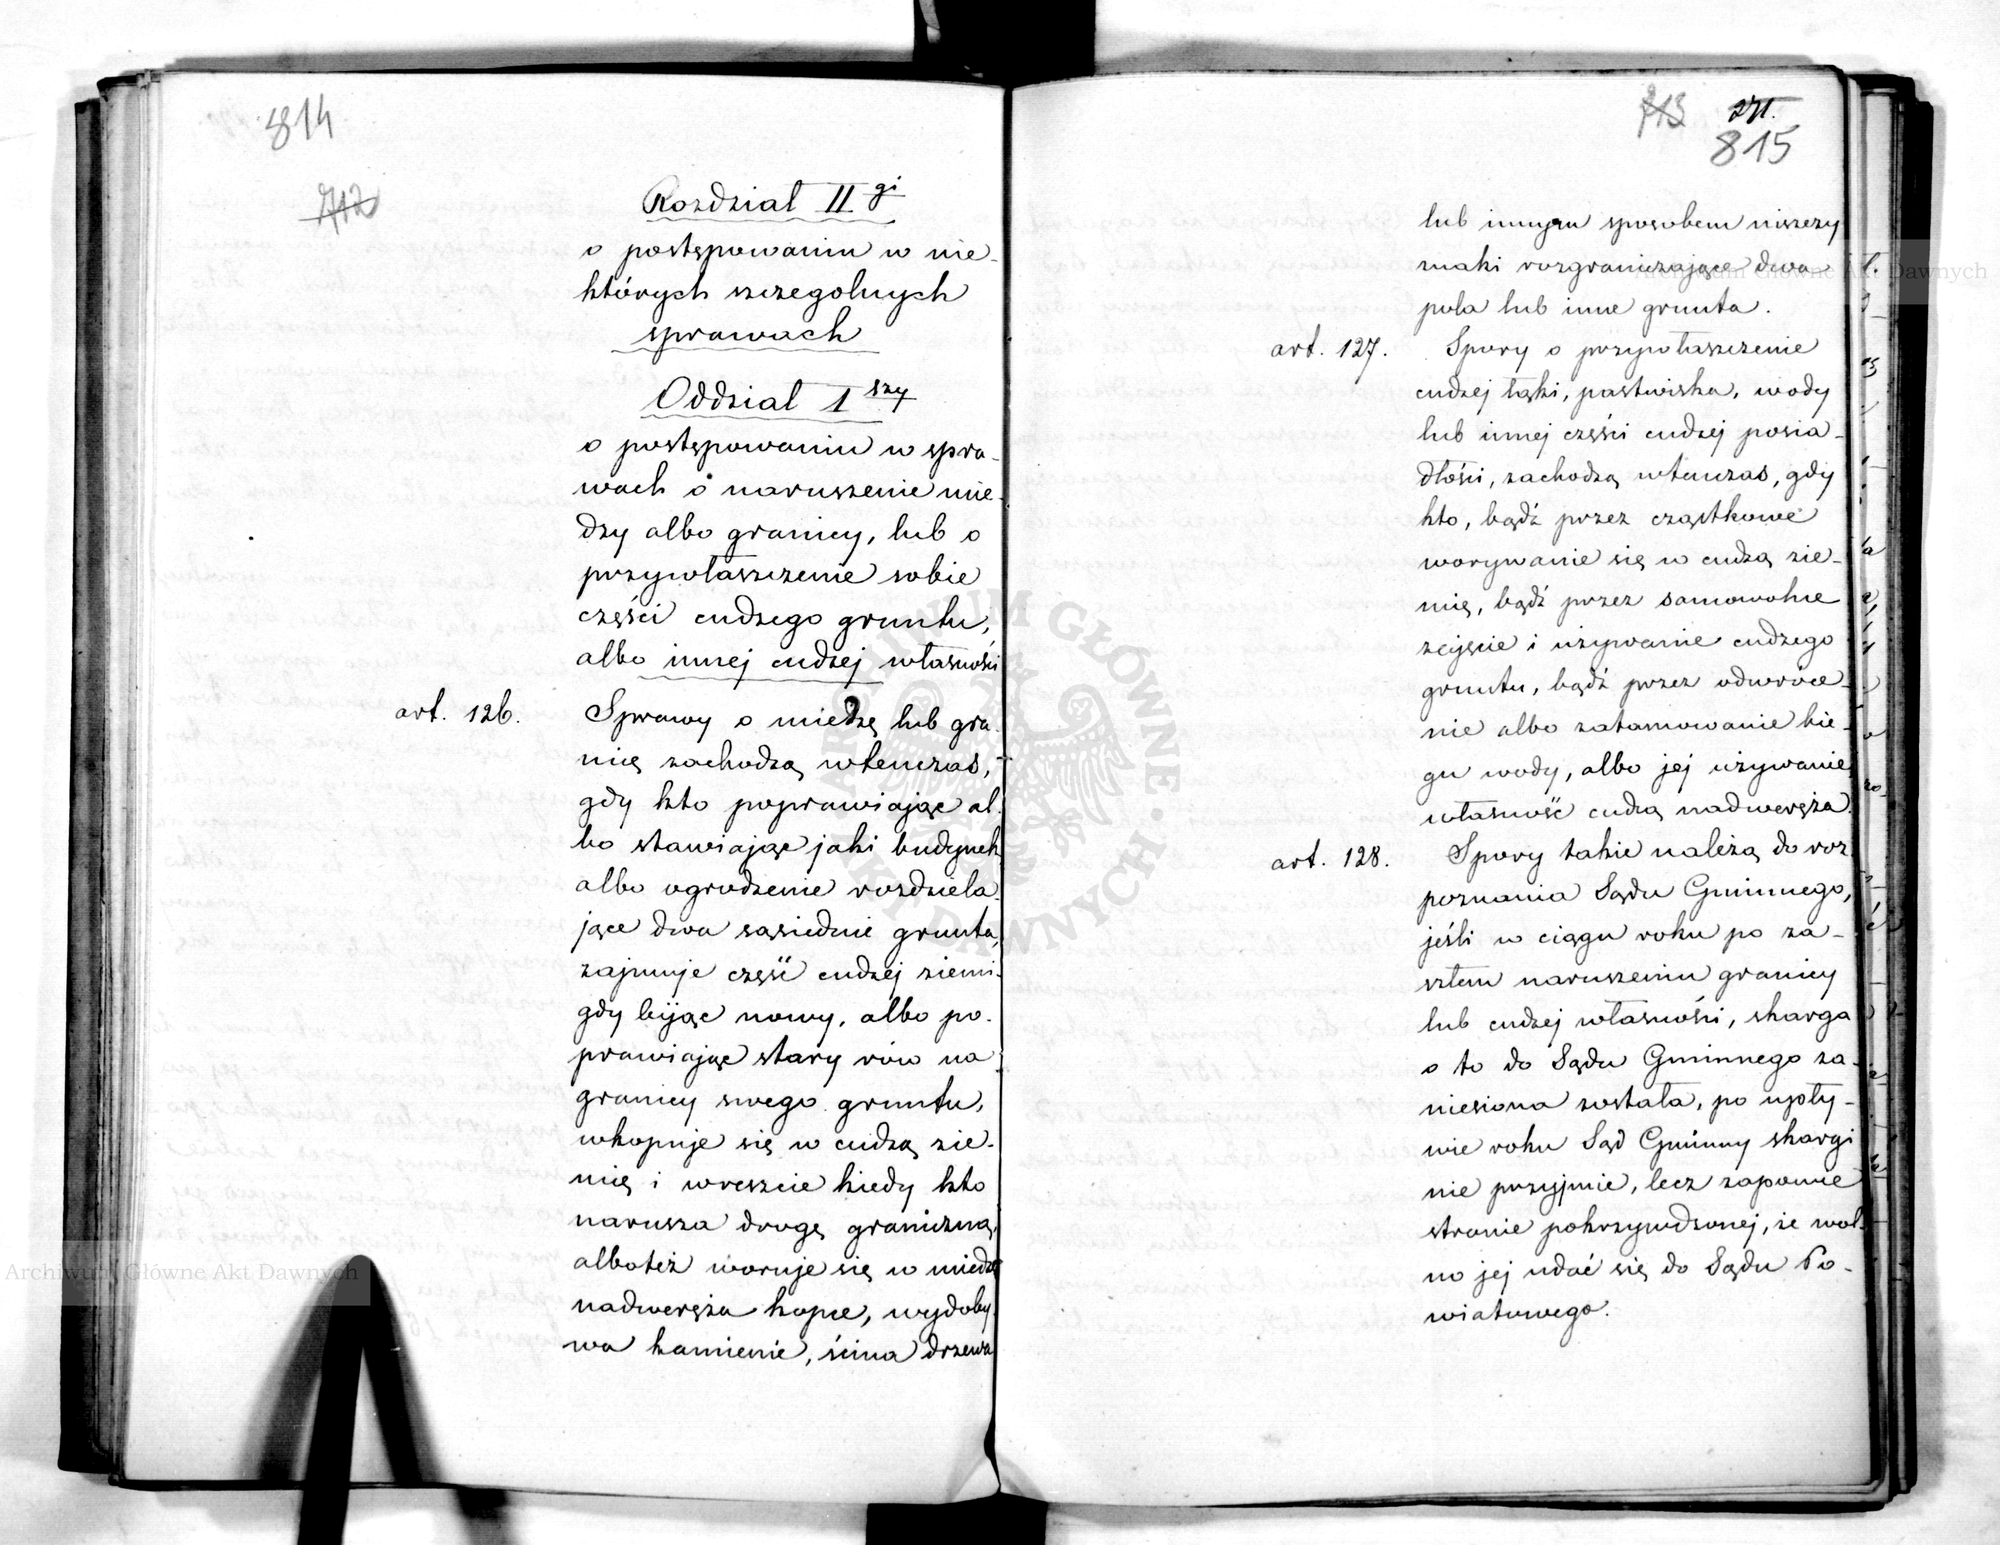 814
712
Rozdział II gi
o postępowaniu w nie-
których szczegolnych
sprawach
Oddział 1 szy
o postępowaniu w spra-
wach o naruszenie mie-
dzy albo granicy, lub o
przywłaszczenie sobie
części cudzego gruntu,
albo innej cudzej własności
art. 126. Sprawy o miedzę lub gra-
nicę zachodzą wtenczas,
gdy kto poprawiając al-
bo stawiając jaki budynek
albo ogrodzenie rozdziela-
jące dwa sąsiednie grunta,
zajmuje część cudzej ziemi-
gdy bijąc nowy, albo po-
prawiając stary rów na
granicy swego gruntu,
wkopuje się w cudzą zie-
mię i wreszcie kiedy kto
narusza drogę graniczną,
albo też woruje się w miedzę
nadweręża kopce, wydoby-
wa kamienie, ścina drzewa
713 271.
815
lub innym sposobem niszczy
znaki rozgraniczające dwa
pola lub inne grunta.
art. 127. Spory o przywłaszczenie
cudzej łąki, pastwiska, wody
lub innej części cudzej posia-
dłości, zachodzą wtenczas, gdy
kto, bądź przez cząstkowe
worywanie się w cudzą zie-
mię, bądź przez samowolne
zcięcie i używanie cudzego
gruntu, bądź przez odwróce-
nie albo zatamowanie bie-
gu wody, albo jej używanie,
własność cudzą nadweręża.
art. 128. Spory takie należą do roz-
poznania Sądu Gminnego,
jeśli w ciągu roku po za-
szłem naruszeniu granicy
lub cudzej własności, skarga
o to do Sądu Gminnego za-
niesiona została, po upły-
wie roku Sąd Gminny skargi
nie przyjmie, lecz zapowie
stronie pokrzywdzonej, że wol-
no jej udać się do Sądu Po-
wiatowego.
Archiwum Główne Akt Dawnych
Archiwum Główne Akt Dawnych
ARCHIWUM GŁÓWNE AKT DAWNYCH